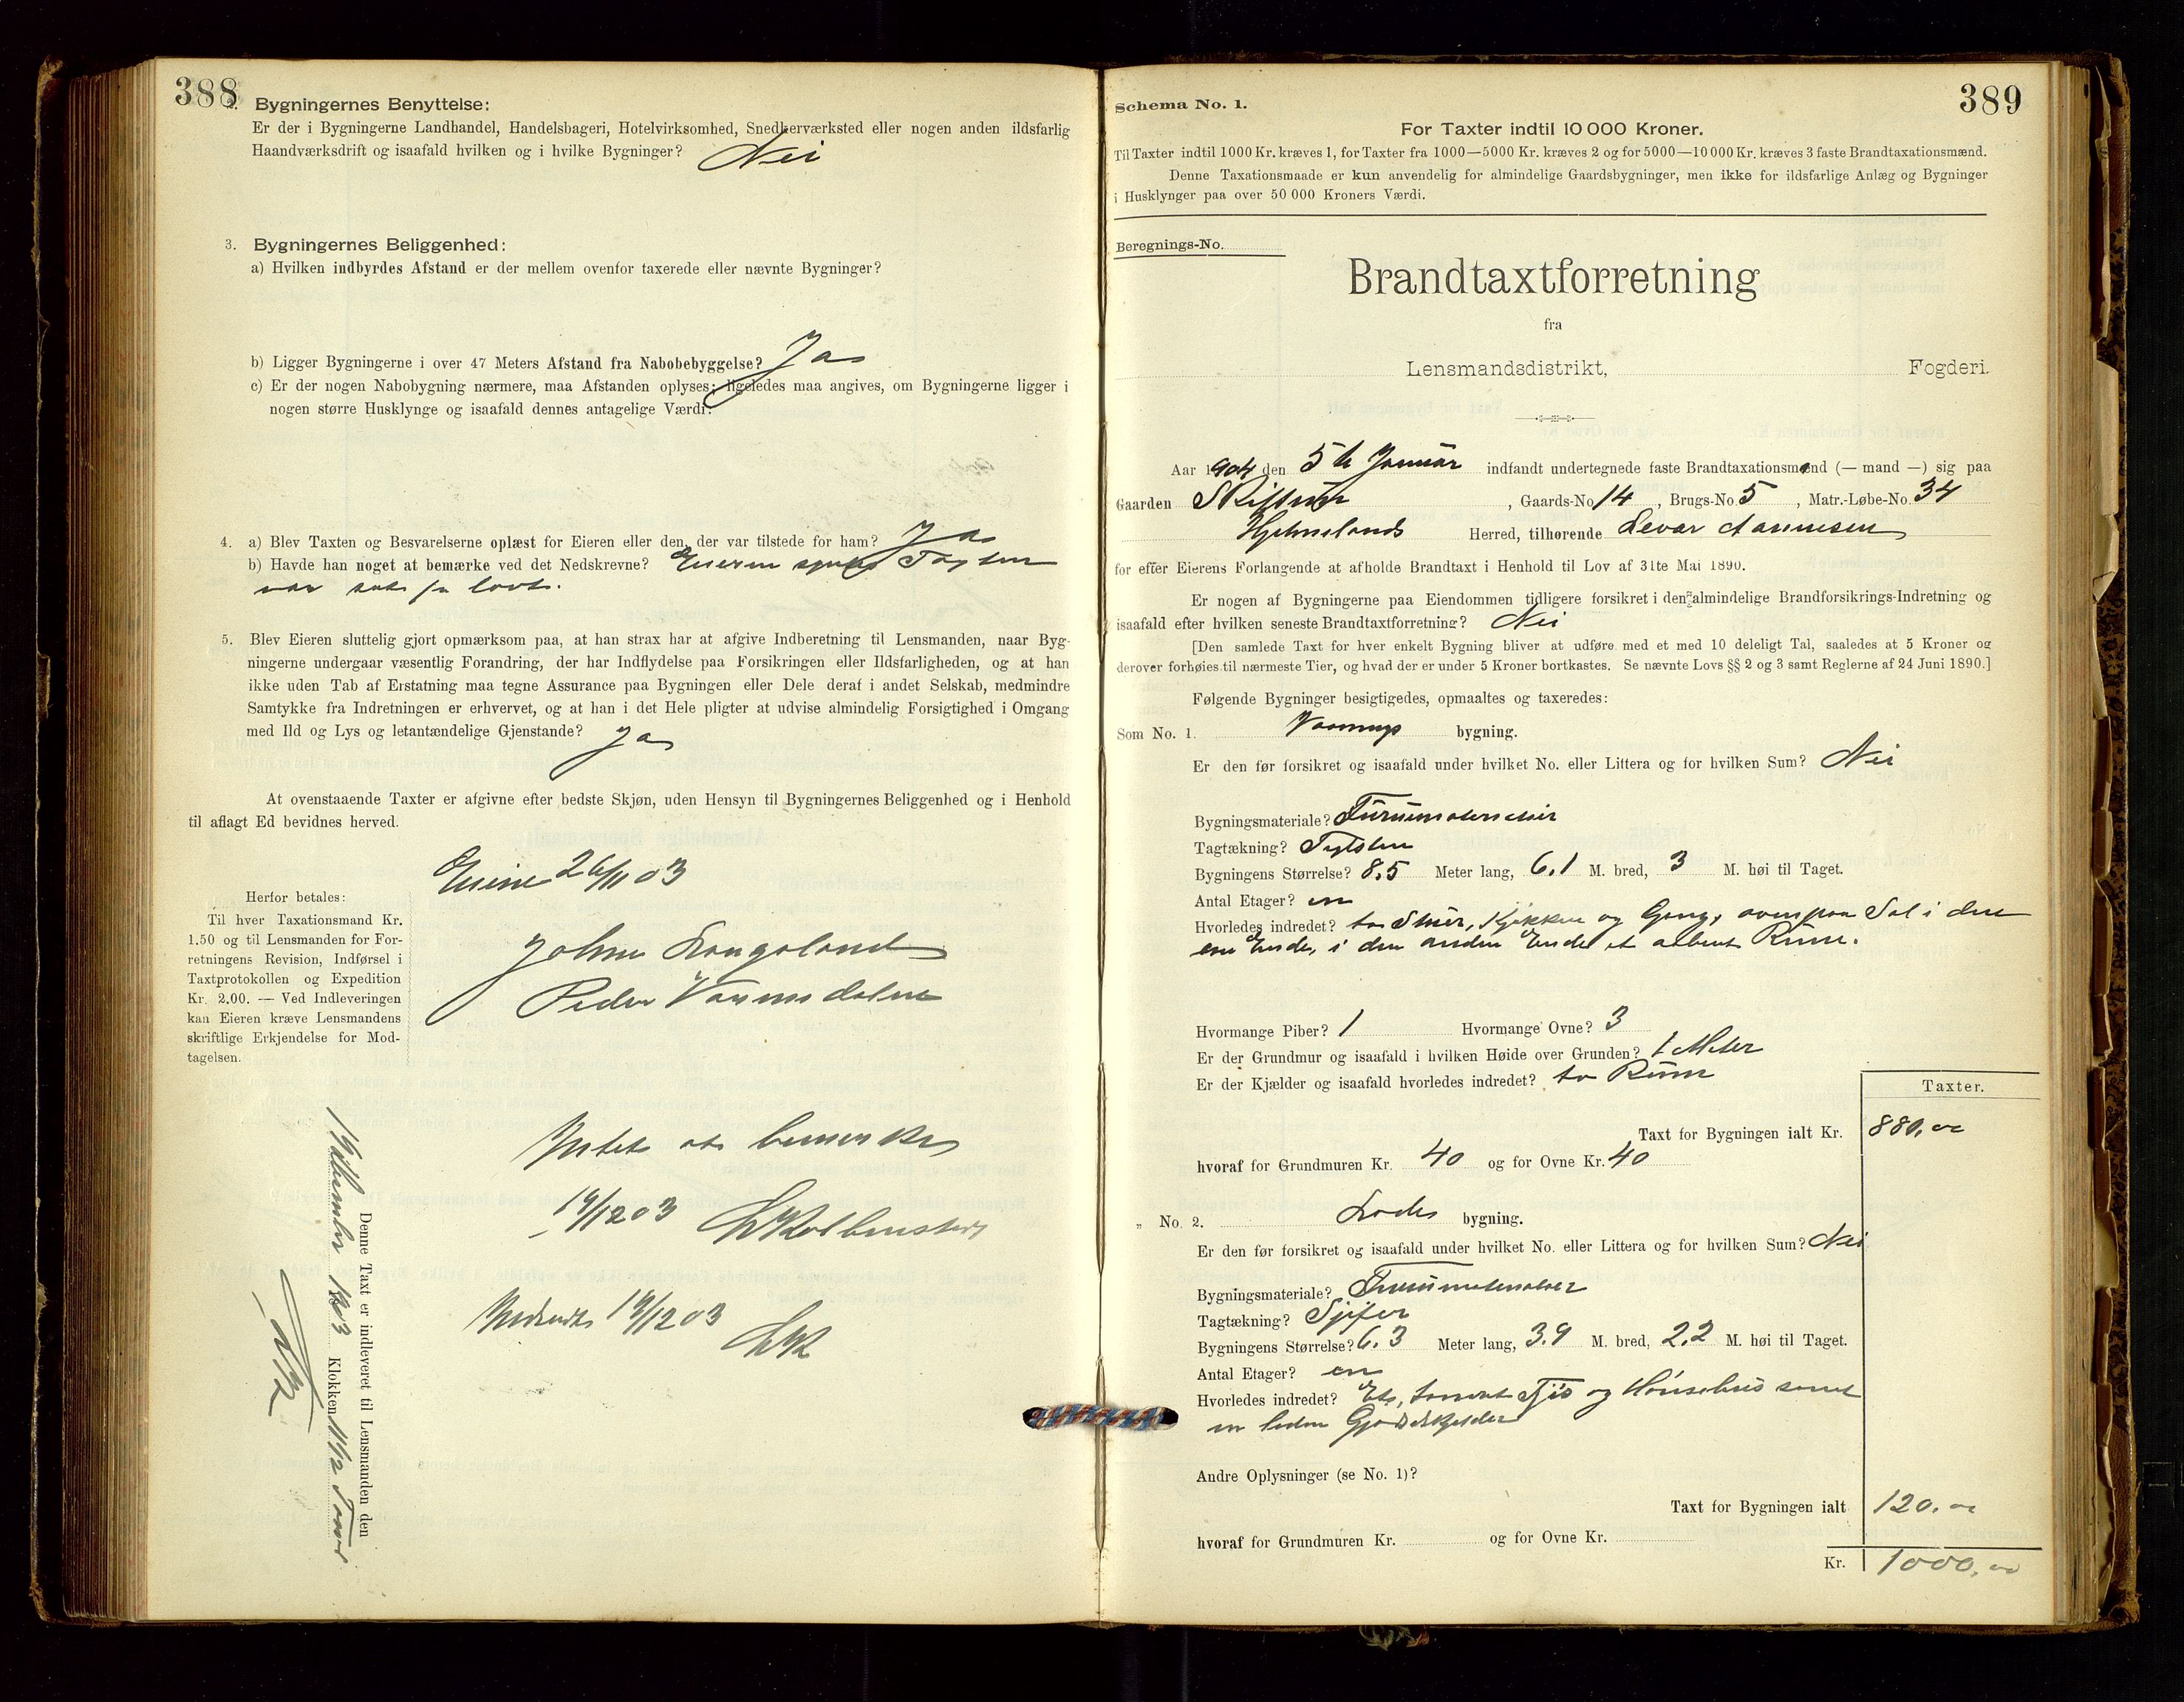 388
2. Bygningernes Benyttelse:
Er der i Bygningerne Landhandel, Handelsbageri, Hotelvirksomhed, Snedkerværksted eller nogen anden ildsfarlig
Haandværksdrift og isaafald hvilken og i hvilke Bygninger? Nei
3. Bygningernes Beliggenhed:
a) Hvilken indbyrdes Afstand er der mellem ovenfor taxerede eller nævnte Bygninger?
b) Ligger Bygningerne i over 47 Meters Afstand fra Nabobebyggelse? Ja
c) Er der nogen Nabobygning nærmere, maa Afstanden oplyses; ligeledes maa angives, om Bygningerne ligger i
nogen større Husklynge og isaafald dennes antagelige Værdi:
4. a) Blev Taxten og Besvarelserne oplæst for Eieren eller den, der var tilstede for ham? Ja
b) Havde han noget at bemærke ved det Nedskrevne? Eieren synes Taxten
var sat for lavt.
5. Blev Eieren sluttelig gjort opmærksom paa, at han strax har at afgive Indberetning til Lensmanden, naar Byg-
ningerne undergaar væsentlig Forandring, der har Indflydelse paa Forsikringen eller Ildsfarligheden, og at han
ikke uden Tab af Erstatning maa tegne Assurance paa Bygningen eller Dele deraf i andet Selskab, medmindre
Samtykke fra Indretningen er erhvervet, og at han i det Hele pligter at udvise almindelig Forsigtighed i Omgang
med Ild og Lys og letantændelige Gjenstande? Ja
At ovenstaaende Taxter er afgivne efter bedste Skjøn, uden Hensyn til Bygningernes Beliggenhed og i Henhold
til aflagt Ed bevidnes herved.
26/11 03
Herfor betales:
Til hver Taxationsmand Kr.
1.50 og til Lensmanden for For-
retningens Revision, Indførsel i
Taxtprotokollen og Expedition
Kr. 2.00. — Ved Indleveringen
kan Eieren kræve Lensmandens
skriftlige Erkjendelse for Mod-
tagelsen.
Johne Langeland
Peder
Intet at bemerke
19/12 03
19/12 03
Denne Taxt er indleveret til Lensmanden den
1903 Klokken 11 1/2
389
Schema No. 1.
For Taxter indtil 10 000 Kroner.
Til Taxter indtil 1000 Kr. kræves 1, for Taxter fra 1000—5000 Kr. kræves 2 og for 5000—10 000 Kr. kræves 3 faste Brandtaxationsmænd.
Denne Taxationsmaade er kun anvendelig for almindelige Gaardsbygninger, men ikke for ildsfarlige Anlæg og Bygninger
i Husklynger paa over 50 000 Kroners Værdi.
Beregnings-No.
Brandtaxtforretning
fra
Lensmandsdistrikt, Fogderi.
Aar 1904 den 5te Januar indfandt undertegnede faste Brandtaxationsmænd (— mand —) sig paa
Gaarden Skiftun, Gaards-No 14, Brugs-No 5, Matr.-Løbe-No. 34
Hjelmelands Herred, tilhørende
for efter Eierens Forlangende at afholde Brandtaxt i Henhold til Lov af 31te Mai 1890.
Er nogen af Bygningerne paa Eiendommen tidligere forsikret i den almindelige Brandforsikrings-Indretning og
isaafald efter hvilken seneste Brandtaxtforretning? Nei
[Den samlede Taxt for hver enkelt Bygning bliver at udføre med et med 10 deleligt Tal, saaledes at 5 Kroner og
derover forhøies til nærmeste Tier, og hvad der er under 5 Kroner bortkastes. Se nævnte Lovs §§ 2 og 3 samt Reglerne af 24 Juni 1890.]
Følgende Bygninger besigtigedes, opmaaltes og taxeredes:
Som No. 1. Vaanings bygning.
Er den før forsikret og isaafald under hvilket No. eller Littera og for hvilken Sum? Nei
Bygningsmateriale? Furumaterialier
Tagtækning? Teglsten
Bygningens Størrelse? 8,5 Meter lang, 6,1 M. bred, 3 M. høi til Taget.
Antal Etager? en
Hvorledes indredet? to Stuer, Kjøkken og Gang, ovenpaa Sal i den
ene Ende, i den anden Ende et aabent Rum.
Hvormange Piber? 1 Hvormange Ovne? 3
Er der Grundmur og isaafald i hvilken Høide over Grunden? 1 Meter
Er der Kjælder og isaafald hvorledes indredet? to Rum
Taxter.
Taxt for Bygningen ialt Kr. 880,00
hvoraf for Grundmuren Kr. 40 og for Ovne Kr. 40
„ No. 2. Lade bygning.
Er den før forsikret og isaafald under hvilket No. eller Littera og for hvilken Sum? Nei
Bygningsmateriale? Furumaterialier
Tagtækning? Sjifer
Bygningens Størrelse? 6,3 Meter lang, 3,9 M. bred, 2,2 M. høi til Taget.
Antal Etager? en
Hvorledes indredet? Et Fjøs og Hønsehus samt
en liden Gjødselkjelder
Andre Oplysninger (se No. 1)?
Taxt for Bygningen ialt 120,00
hvoraf for Grundmuren Kr. og for Ovne Kr.
Kr. 1000,00